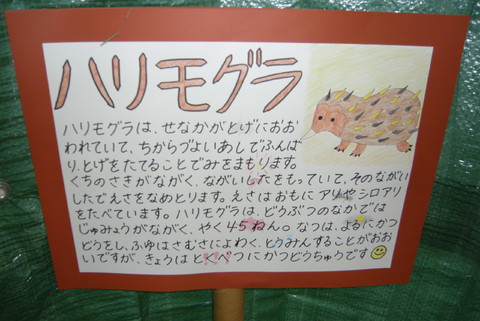 ハリモグラ
ハリモグラは、せなかがとげにおお
われていて、ちからづよいあしでふんば
り、とげをたてることでみをまもります。
くちのさきがながく、ながいしたをもっていて、そのながい
したでえさをなめとります。えさはおもにアリやシロアリ
をたべています。ハリモグラは、どうぶつのなかでは
じゅみょうがながく、やく45ねん。なつは、よるにかつ
どうをし、ふゆはさむさによわく、とうみんすることがおお
いですが、きょうはとくべつにかつどうちゅうです